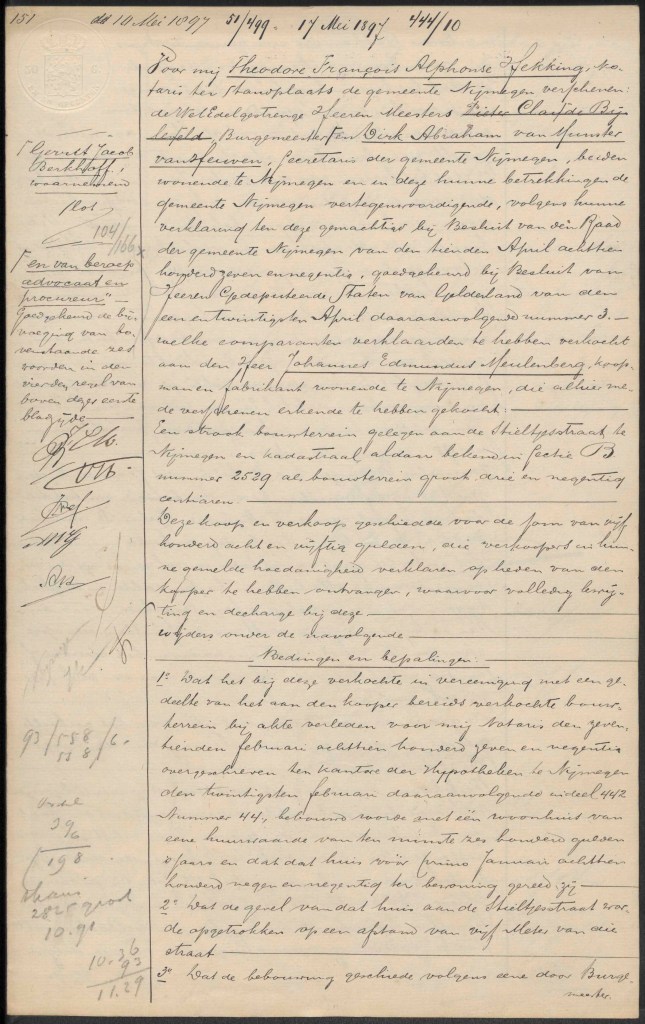 151 dd 10 Mei 1897 51/499. 17 Mei 1897 444/10
Voor mij Theodore François Alphonse Hekking, No-
taris ter standplaats de gemeente Nijmegen verschenen:
de WelEdelgestrenge Heeren Meesters Pieter Claude Bij-
leveld, Burgemeester en Dirk Abraham van Munster
van Heuven, Secretaris der gemeente Nijmegen, beiden
wonende te Nijmegen en in deze hunne betrekkingen de
gemeente Nijmegen vertegenwoordigende, volgens hunne
verklaring ten deze gemachtigd bij Besluit van den Raad
der gemeente Nijmegen van den tienden April achttien
honderd zeven en negentig, goedgekeurd bij Besluit van
Heeren Gedeputeerde Staten van Gelderland van den
een en twintigsten April daaraanvolgende nummer 3.—
welke comparanten verklaarden te hebben verkocht
aan den Heer Johannes Edmundus Meulenberg, koop-
man en fabrikant wonende te Nijmegen, die alhier me-
de verschenen erkende te hebben gekocht:
Een strook bouwterrein gelegen aan de Stieltjesstraat te
Nijmegen en kadastraal aldaar bekend in Sectie B
nummer 2529 als bouwterrein groot drie en negentig
centiaren
Deze koop en verkoop geschiedde voor de som van vijf
honderd acht en vijftig gulden, die verkoopers in hun-
ne gemelde hoedanigheid verklaren op heden van den
kooper te hebben ontvangen, waarvoor volledig kwij-
ting en decharge bij deze
wijders onder de navolgende
Bedingen en bepalingen:
1o Dat het bij deze verkochte in vereeniging met een ge-
deelte van het aan den kooper bereids verkochte bouw-
terrein bij akte verleden voor mij Notaris den zeven-
tienden februari achttien honderd zeven en negentig
overgeschreven ten kantore der Hypotheken te Nijmegen
den twintigsten februari daaraanvolgende in deel 442
Nummer 44, bebouwd worde met één woonhuis van
eene huurwaarde van ten minste zes honderd gulden
's jaars en dat dat huis vóór primo Januari achttien
honderd negen en negentig ter bewoning gereed zij
2o Dat de gevel van dat huis aan de Stieltjesstraat wor-
de opgetrokken op een afstand van vijf Meter van die
straat
3o Dat de bebouwing geschiede volgens eene door Burge-
meester
Gerrit Jacob
Berkhoff,
waarnemend
104/166 x
en van beroep
advocaat en
procureur"—
Goedgekeurd de bij-
voeging van bo-
venstaande zes
woorden in den
vierden regel van
boven dezes eerste
bladzijde
93/558/6.
558
396
198
2825 groot
10.91
10.36
93
11.29